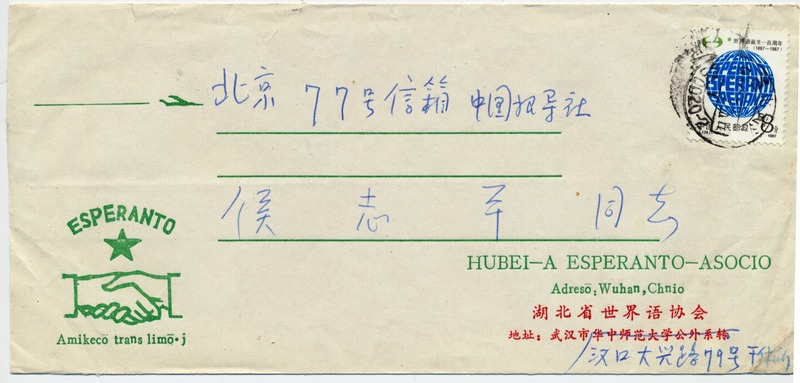 世界语诞生一百周年
(1887-1987)
ESPERANTO
中国人民邮政
8分
北京 77号信箱 中国报导社
侯志平 同志
ESPERANTO
Amikecō trans limō•j
HUBEI-A ESPERANTO-ASOCIO
Adresō:Wuhan,Chnio
湖北省世界语协会
地址:武汉市华中师范大学公外系转
汉口大兴路79号